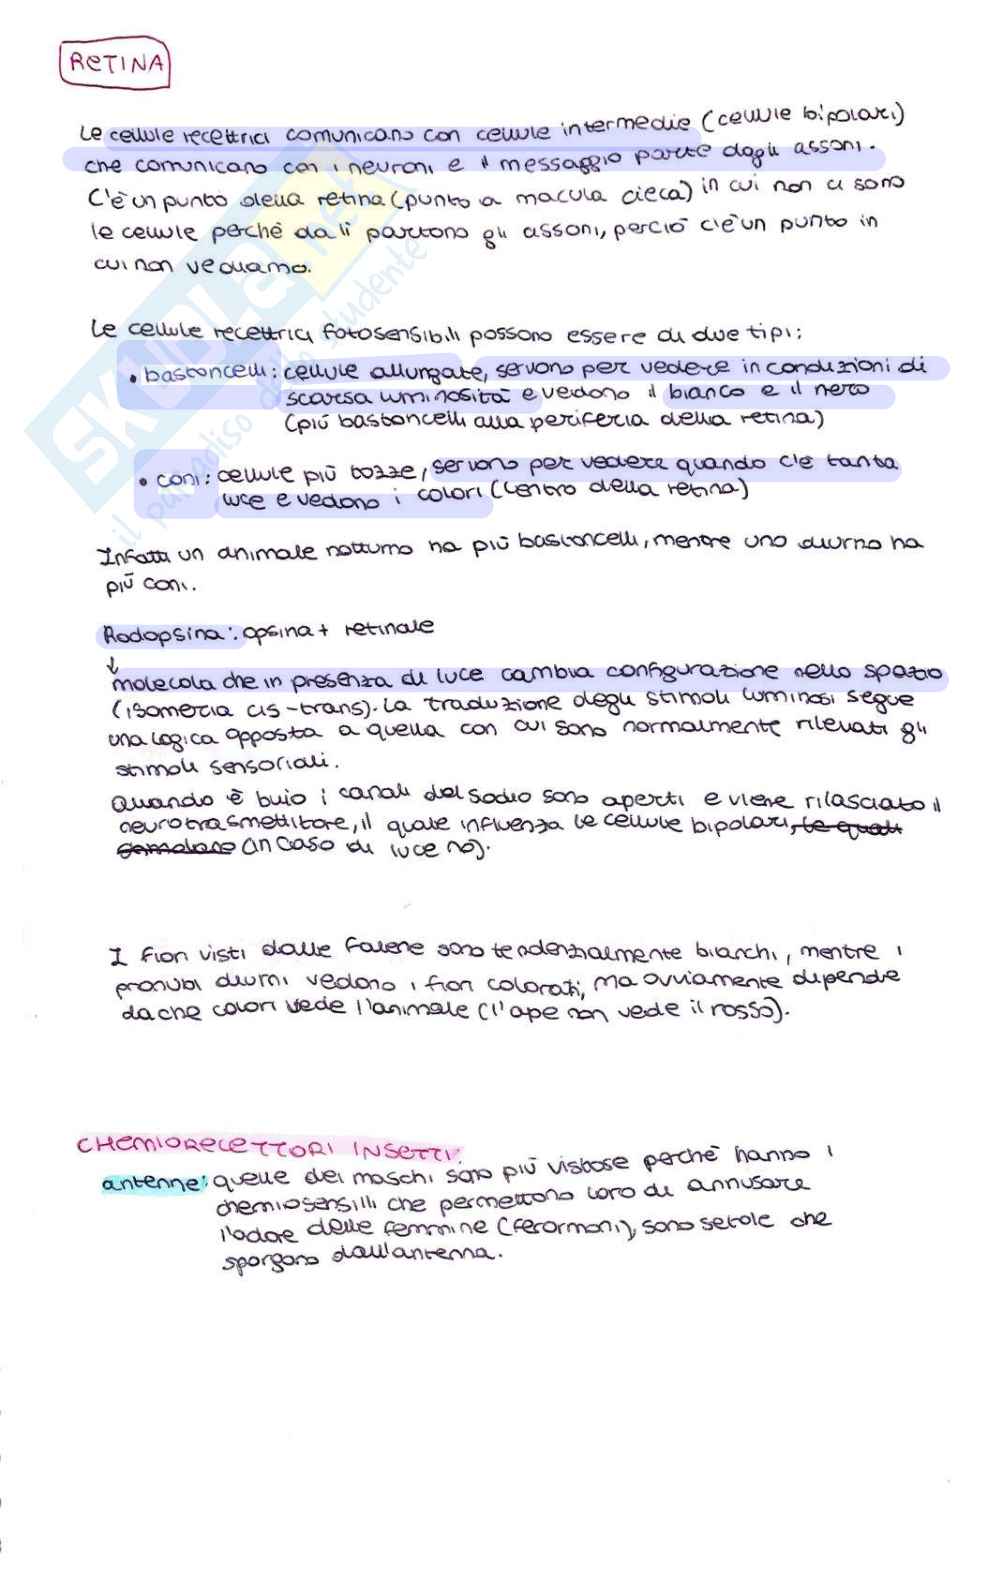 RETINA
Le cellule recettrici comunicano con cellule intermedie (cellule bipolari)
che comunicano con i neuroni e il messaggio parte dagli assoni.
C'è un punto della retina (punto a macula cieca) in cui non ci sono
le cellule perchè da lì partono gli assoni, perciò c'è un punto in
cui non vediamo.
Le cellule recettrici fotosensibili possono essere di due tipi:
• bastoncelli: cellule allungate, servono per vedere in condizioni di
scarsa luminosità e vedono il bianco e il nero
(più bastoncelli alla periferia della retina)
• coni: cellule più tozze, servono per vedere quando c'è tanta
luce e vedono i colori (centro della retina)
Infatti un animale notturno ha più bastoncelli, mentre uno diurno ha
più coni.
Rodopsina: opsina + retinale
↓
molecola che in presenza di luce cambia configurazione nello spazio
(isomeria cis-trans). La traduzione degli stimoli luminosi segue
una logica opposta a quella con cui sono normalmente rilevati gli
stimoli sensoriali.
Quando è buio i canali del sodio sono aperti e viene rilasciato il
neurotrasmettitore, il quale influenza le cellule bipolari, le quali
(in caso di luce no).
I fiori visti dalle falene sono tendenzialmente bianchi, mentre i
pronubi diurni vedono i fiori colorati, ma ovviamente dipende
da che colori vede l'animale (l'ape non vede il rosso).
CHEMIORECETTORI INSETTI:
antenne: quelle dei maschi sono più vistose perchè hanno i
chemiosensilli che permettono loro di annusare
l'odore delle femmine (ferormoni), sono setole che
sporgono dall'antenna.
SKUOLA.net
il paradiso dello studente